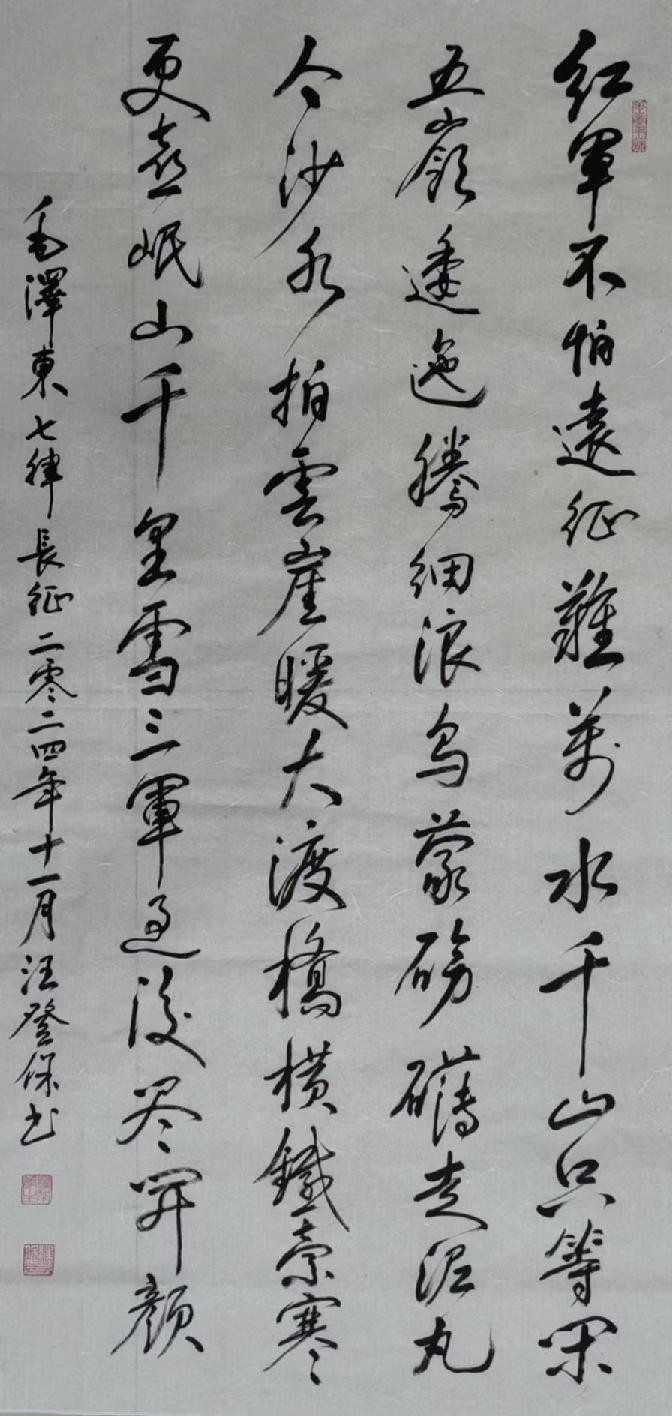 紅軍不怕遠征難萬水千山只等閑
五嶺逶迤騰細浪烏蒙磅礴走泥丸
金沙水拍雲崖暖大渡橋横鐵索寒
更喜岷山千里雪三軍過後尽開顔
毛澤東七律長征二零二四年十一月汪登保书